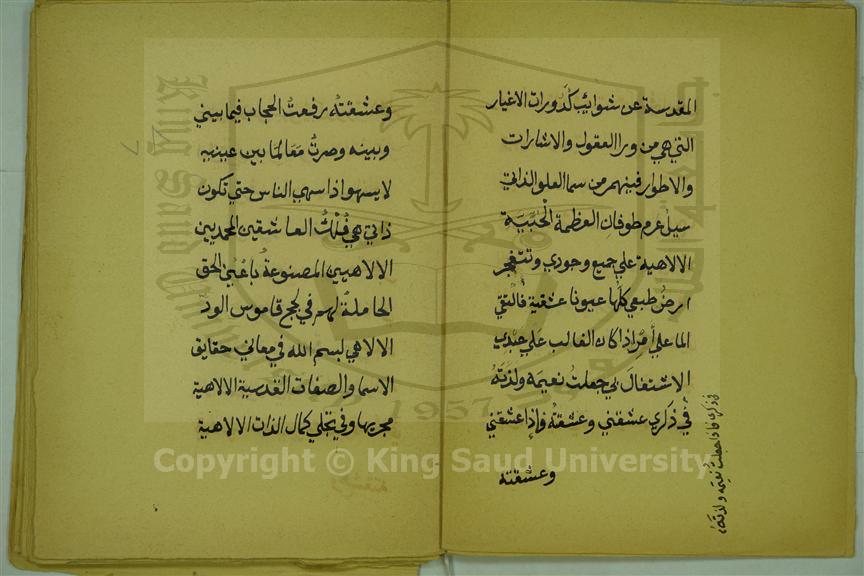 المقدسة عن شوايب كدورات الاغيار
التي هي من ورا العقول والاشارات
والاطوار فينهمر من سما العلو الذاتي
سيل عرم طوفان العظمة الحبية
الالاهية علي جميع وجودي وتنفجر
ارض طبعي كلها عيونا عشقية فالتقي
الما علي أمر اذا كان الغالب علي عبدي
الاشتغال بي جعلت نعيمه ولذته
في ذكري عشقني وعشقته فإذا عشقني
وعشقته
في ذكري فاذا جعلت نعيمه ولذته
وعشقته رفعت الحجاب فيما بيني
وبينه وصرت معالما بين عينيه
لا يسهو اذا سهي الناس حتي تكون
ذاتي هي فلك العاشقين المحمديين
الالاهيين المصنوعة باعين الحق
الحاملة لهم في لجج قاموس الود
الالاهي لبسم الله في معاني حقايق
الاسما والصفات القدسية الالاهية
مجريها وفي تجلي كمال الذات الالاهية
King Saud University
1957
Copyright © King Saud University